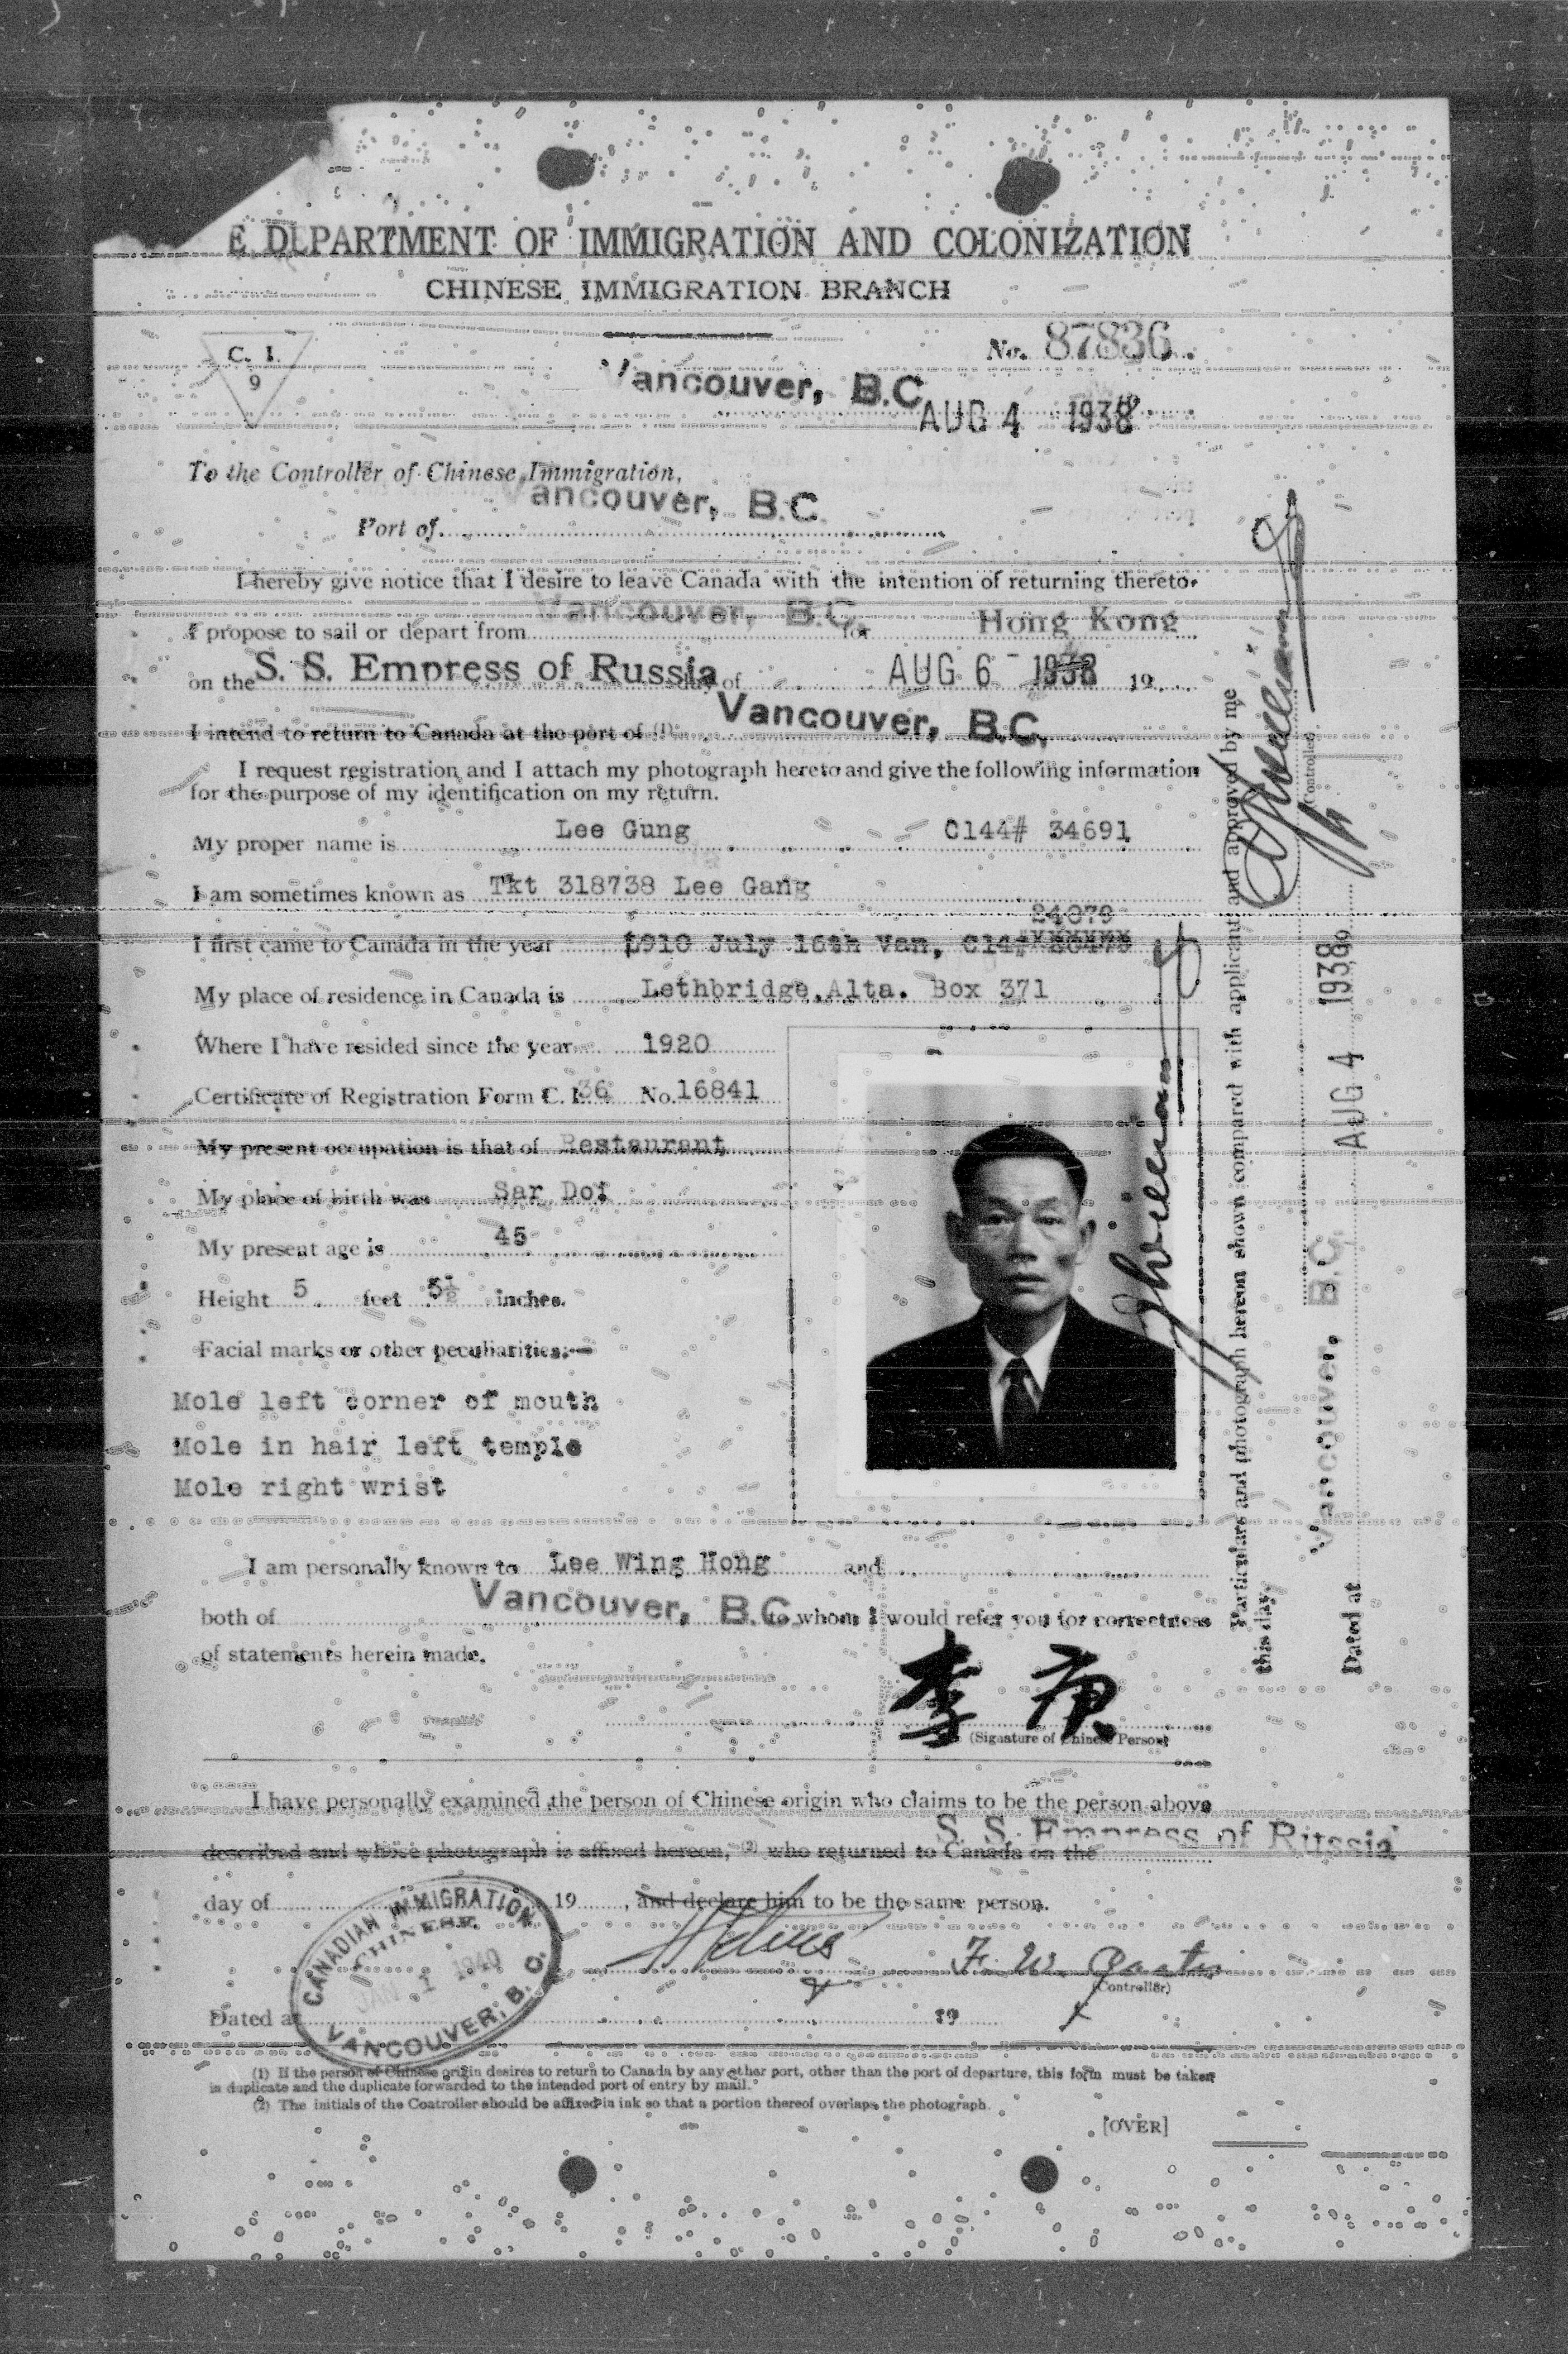 E DEPARTMENT OF IMMIGRATION AND COLONIZATION
CHINESE IMMIGRATION BRANCH
C. I.
9
No. 87836
Vancouver, B.C.
AUG 4 1938
To the Controller of Chinese Immigration,
Vancouver, B.C.
Port of
I hereby give notice that I desire to leave Canada with the intention of returning thereto.
I propose to sail or depart from Vancouver, B.C. for Hong Kong
on the S. S. Empress of Russia day of AUG 6 - 1938 19
I intend to return to Canada at the port of (1) Vancouver, B.C.
I request registration and I attach my photograph hereto and give the following information
for the purpose of my identification on my return.
My proper name is Lee Gung C144# 34691
I am sometimes known as Tkt 318738 Lee Gang
24079
I first came to Canada in the year 1910 July 16th Van, C14#
My place of residence in Canada is Lethbridge, Alta. Box 371
Where I have resided since the year 1920
Certificate of Registration Form C. I. 36 No. 16841
My present occupation is that of Restaurant
My place of birth was Sar Doi
My present age is 45
Height 5 feet 5½ inches.
Facial marks or other peculiarities:—
Mole left corner of mouth
Mole in hair left temple
Mole right wrist
I am personally known to Lee Wing Hong and
both of Vancouver, B.C. to whom I would refer you for correctness
of statements herein made.
李庚
(Signature of Chinese Person)
I have personally examined the person of Chinese origin who claims to be the person above
S. S. Empress of Russia
described and whose photograph is affixed hereon, (2) who returned to Canada on the
day of 19 , and declare him to be the same person.
CANADIAN IMMIGRATION
CHINESE
JAN 1 1940
VANCOUVER, B. C.
F. W.
(Controller)
Dated at 19
(1) If the person of Chinese origin desires to return to Canada by any other port, other than the port of departure, this form must be taken
in duplicate and the duplicate forwarded to the intended port of entry by mail.
(2) The initials of the Controller should be affixed in ink so that a portion thereof overlaps the photograph.
[OVER]
Particulars and photograph herein shown compared with applicant and approved by me
this day.
(Controller)
Dated at Vancouver, B.C. AUG 4 1938 19